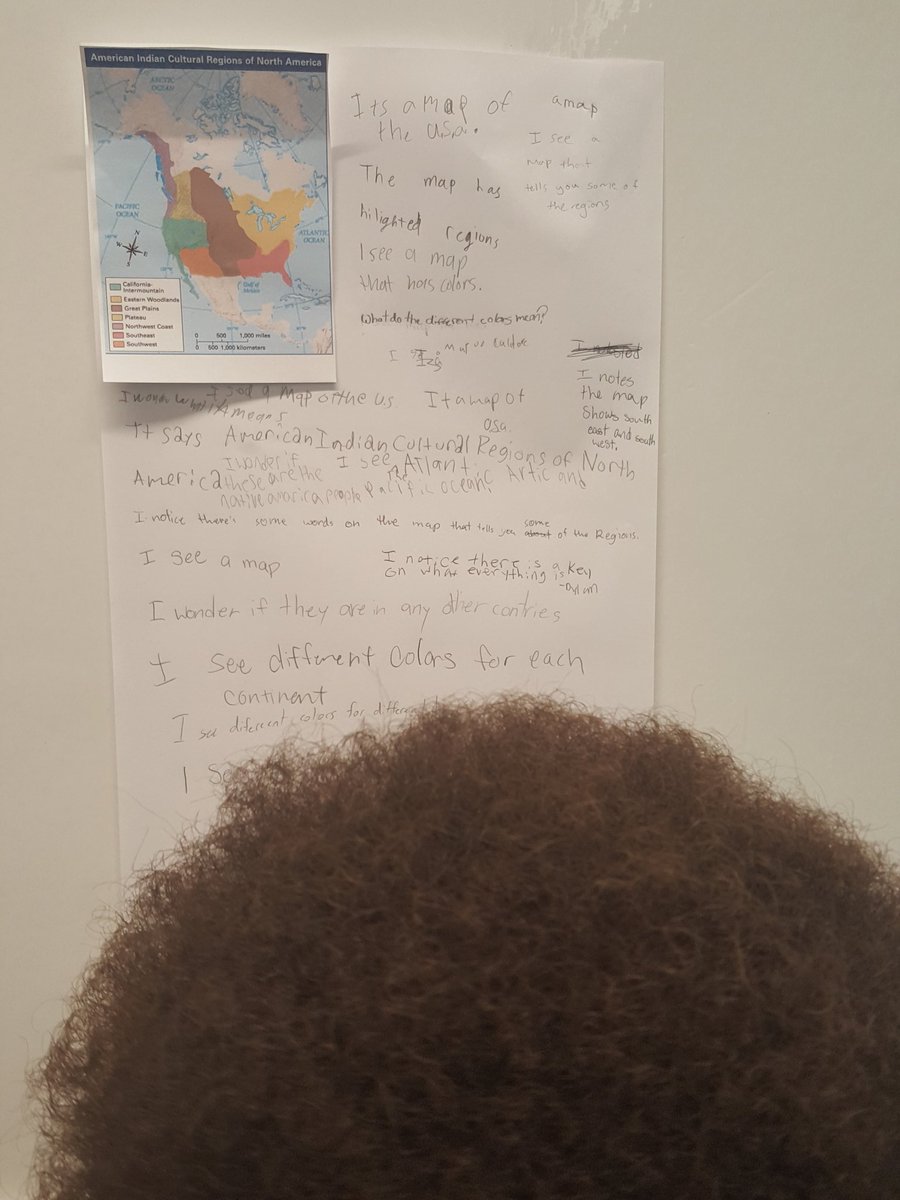 American Indian Cultural Regions of North America
ARCTIC
OCEAN
PACIFIC
OCEAN
ATLANTIC
OCEAN
N
W
E
S
Gulf of
Mexico
California-
Intermountain
Eastern Woodlands
Great Plains
Plateau
Northwest Coast
Southeast
Southwest
0 500 1,000 miles
0 500 1,000 kilometers
Its a map of
the u.s.a.
a map
I see a
map that
tells you some of
the regions
The map has
hilighted regions
I see a map
that has colors.
What do the different colors mean?
I
I notes
the map
shows south
east and south
west.
I wonder what it means
I see a map of the us.
It a map of
usa.
It says American Indian Cultural Regions of North
America
I wonder if
these are the
native amarica people
I see the Atlant. Artic and
Pacific ocean.
I notice there's some words on the map that tells you some of the Regions.
I see a map
I notice there is a key
on what everything is
-Dylan
I wonder if they are in any other contries
I see different colors for each
continent
I see diferent colors for different
I